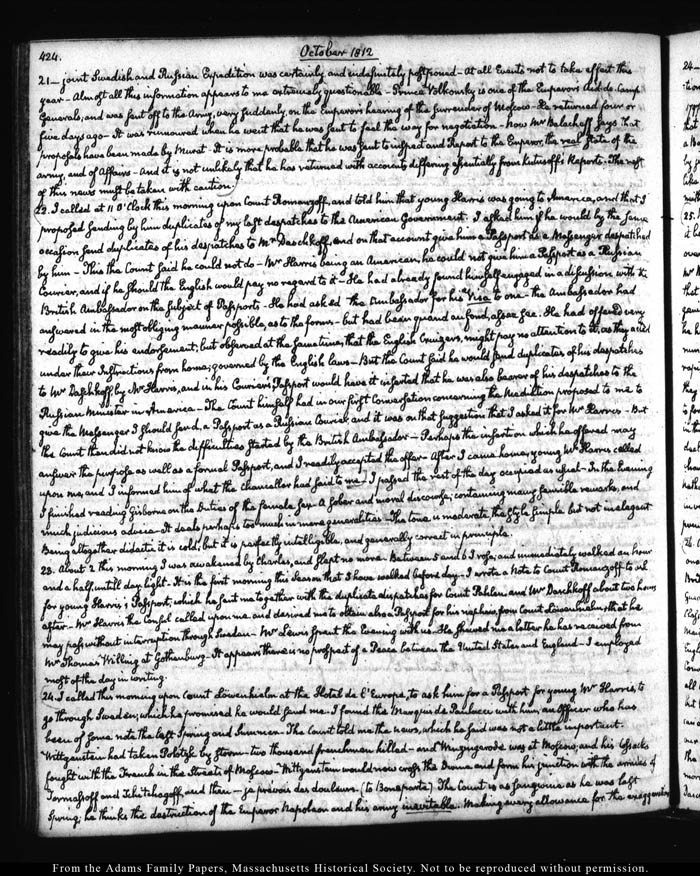 424.
October 1812
21— joint Swedish and Russian Expedition was certainly and indefinitely postponed— At all Events not to take effect this
year— Almost all this information appears to me extremely questionable.— Prince Volkonsky is one of the Emperor's Aid-de-Camp
Generals, and was sent off to the Army, very suddenly, on the Emperor's hearing of the Surrender of Moscow— He returned four or
five days ago— It was rumoured when he went that he was sent to feel the way for negotiation— Now Mr Balacheff says that
proposals have been made by Murat— It is more probable that he was sent to inspect and Report to the Emperor, the real State of the
army, and of Affairs— And it is not unlikely that he has returned with accounts differing essentially from Kutusoff's Reports. The rest
of this news must be taken with caution.
I called at 11 O'Clock this morning upon Count Romanzoff, and told him that young Harris was going to America, and that I
proposed sending by him duplicates of my last despatches to the American Government. I asked him if he would by the same
occasion send duplicates of his despatches to Mr Daschkoff, and on that account give him a Passport as a Messenger despatched
by him— This the Count said he could not do— Mr Harris being an American, he could not give him a Passport as a Russian
Courier, and if he should the English would pay no regard to it— He had already found himself engaged in a discussion with the
British Ambassador on the subject of Passports— He had asked the Ambassador for his Visa to one— the Ambassador had
answered in the most obliging manner possible, as to the forms— but had been quand au fond, assez sec. He had offered very
readily to give his endorsement; but observed at the same time, that the English Cruizers, might pay no attention to it, as they acted
under their Instructions from home; governed by the English laws— But the Count said he would send duplicates of his despatches
to Mr Dashkoff by Mr Harris, and in his Courier's Passport would have it inserted that he was also bearer of his despatches to the
Russian Minister in America— The Count himself had in our first Conversation concerning the Mediation proposed to me to
give the Messenger I should send, a Passport as a Russian Courier, and it was on that suggestion that I asked it for Mr Harris— But
the Count then did not know the difficulties started by the British Ambassador— Perhaps the insertion which he offered may
answer the purpose as well as a formal Passport, and I readily accepted the offer— After I came home, young Mr Harris called
upon me, and I informed him of what the Chancellor had said to me. I passed the rest of the day occupied as usual— In the Evening
I finished reading Gisborne on the Duties of the female Sex— A sober and moral discourse; containing many sensible remarks, and
much judicious advice— It deals perhaps too much in mere generalities— The tone is moderate, the style simple but not inelegant
Being altogether didactic it is cold, but it is perfectly intelligible, and generally correct in principle.
23. About 2 this morning I was awakened by Charles, and slept no more. Between 5 and 6 I rose, and immediately walked an hour
and a half, until day light. It is the first morning this Season that I have walked before day— I wrote a Note to Count Romanzoff to ask
for young Harris's Passport; which he sent me together with the duplicate despatches for Count Pahlen and Mr Daschkoff about two hours
after— Mr Harris the Consul called upon me, and desired me to obtain also a Passport for his nephew from Count Löwenhielm, that he
may pass without interruption through Sweden— Mr Lewis spent the Evening with us— He shewed me a letter he has received from
Mr Thomas Willing at Gothenburg— It appears there is no prospect of a Peace between the United States and England— I employed
most of the day in writing.
24. I called this morning upon Count Löwenhielm at the Hotel de l'Europe, to ask him for a Passport for young Mr Harris, to
go through Sweden; which he promised he would send me. I found the Marquis de Paulucci with him, an Officer who has
been of some note the last Spring and Summer— The Count told me the news, which he said was not a little important.
Wittgenstein had taken Polotzk by storm— two thousand frenchmen killed— and Winzingerode was at Moscow, and his Cossacks
fought with the French in the Streets of Moscow— Wittgenstein would now cross the Dwina and form his junction with the armies of
Tormassoff and Tchitchagoff, and then— je prévois des douleurs (to Bonaparte) The Count is as sanguine as he was last
Spring; he thinks the destruction of the Emperor Napoleon and his army inevitable. Making every allowance for the exaggerations
From the Adams Family Papers, Massachusetts Historical Society. Not to be reproduced without permission.